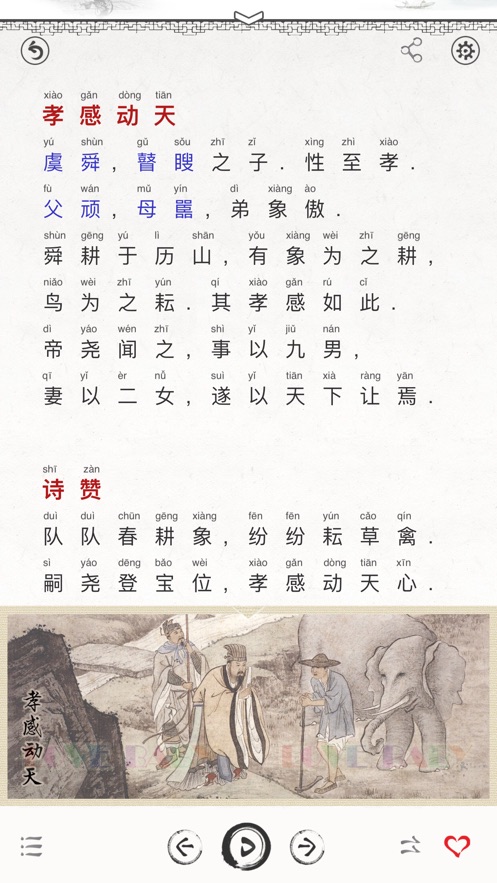 xiào gǎn dòng tiān
孝感动天
yú shùn gǔ sǒu zhī zǐ xìng zhì xiào
虞舜,瞽瞍之子.性至孝.
fù wán mǔ yín dì xiàng ào
父顽,母嚚,弟象傲.
shùn gēng yú lì shān yǒu xiàng wèi zhī gēng
舜耕于历山,有象为之耕,
niǎo wèi zhī yún qí xiào gǎn rú cǐ
鸟为之耘.其孝感如此.
dì yáo wén zhī shì yǐ jiǔ nán
帝尧闻之,事以九男,
qī yǐ èr nǚ suì yǐ tiān xià ràng yān
妻以二女,遂以天下让焉.
shī zàn
诗赞
duì duì chūn gēng xiàng fēn fēn yún cǎo qín
队队春耕象,纷纷耘草禽.
sì yáo dēng bǎo wèi xiào gǎn dòng tiān xīn
嗣尧登宝位,孝感动天心.
孝感动天